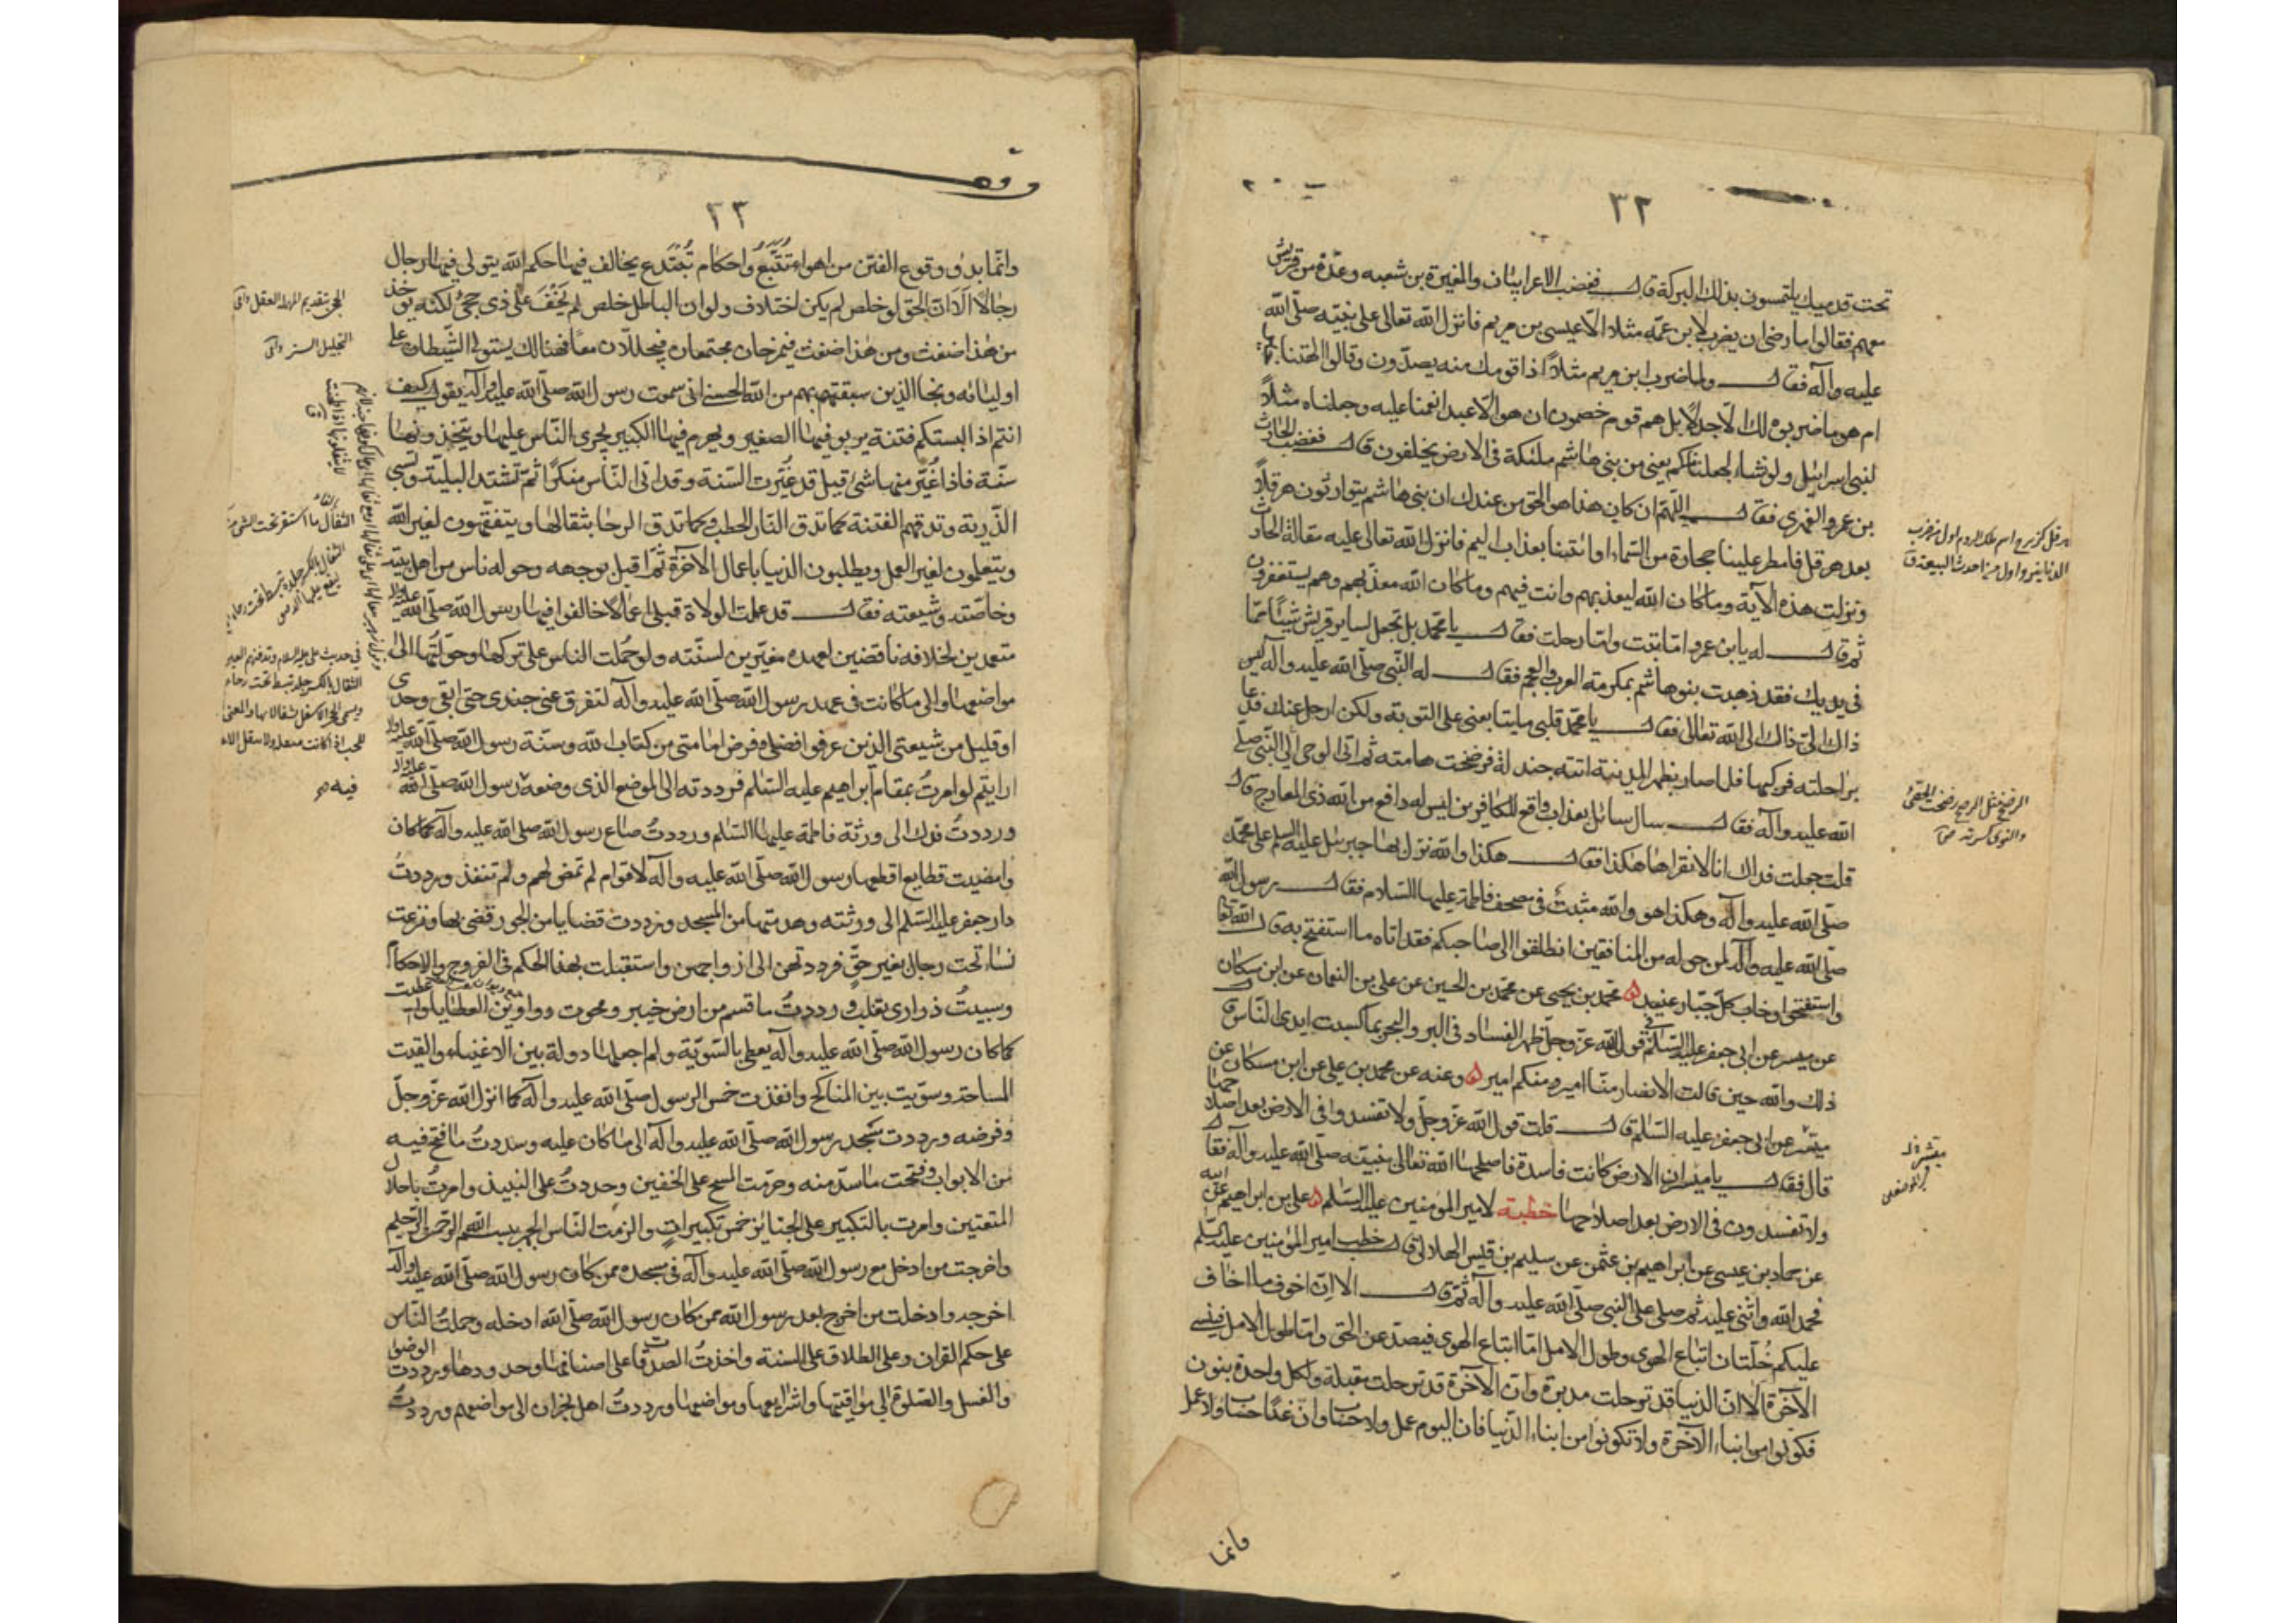 ٣٢
تحت قدميك يلتمسون بذلك البركة قال فغضب الاعرابيان والمغيرة بن شعبه وعدة من قريش
معهم فقالوا ما رضى ان يضرب لابن عمّه مثلا الّا عيسى بن مريم فانزل الله تعالى على نبيّه صلّى الله
عليه وآله فقال ولما ضرب ابن مريم مثلاً اذا قومك منه يصدّون وقالوا ءالهتنا خير
ام هو ما ضربوه لك الّا جدلاً بل هم قوم خصمون ان هو الّا عبد انعمنا عليه وجعلناه مثلاً
لبني اسرائيل ولو نشاء لجعلنا منكم يعني من بني هاشم ملئكة في الارض يخلفون قال فغضب الحارث
بن عمرو الفهري فقال اللّهمّ ان كان هذا هو الحق من عندك ان بني هاشم يتوارثون هرقلاً
بعد هرقل فامطر علينا حجارة من السّماء او ائتنا بعذاب اليم فانزل الله تعالى عليه مقالة الحارث
ونزلت هذه الآية وما كان الله ليعذبهم وانت فيهم وما كان الله معذّبهم وهم يستغفرون
ثم قال له يا بن عمرو امّا تبت وامّا رحلت فقال يا محمّد بل تجعل لساير قريش شيئاً ممّا
في يديك فقد ذهبت بنو هاشم بمكرمة العرب والعجم فقال له النّبي صلّى الله عليه وآله ليس
ذلك الىّ ذلك الى الله تعالى فقال يا محمّد قلبي ما يتابعني على التوبة ولكن ارحل عنك فدعا
براحلته فركبها فلما صار بظهر المدينة اتته جندلة فرضخت هامته ثم اتى الوحي الى النّبي صلّى
الله عليه وآله فقال سال سائل بعذاب واقع للكافرين ليس له دافع من الله ذي المعارج قال
قلت جعلت فداك انا لا نقراها هكذا فقال هكذا والله نزل بها جبرئيل عليه السلم على محمّد
صلّى الله عليه وآله وهكذا هو والله مثبت في مصحف فاطمة عليها السّلام فقال رسول الله
صلّى الله عليه وآله لمن حوله من المنافقين انطلقوا الى صاحبكم فقد اتاه ما استفتح به قال الله تعالى
واستفتحوا وخاب كلّ جبّار عنيد ه محمّد بن يحيى عن محمّد بن الحسين عن علي بن النعمان عن ابن مسكان
عن ميسر عن ابي جعفر عليه السّلم في قول الله عزّ وجلّ ظهر الفساد في البر والبحر بما كسبت ايدي النّاس قال
ذلك والله حين قالت الانصار منّا امير ومنكم امير ه وعنه عن محمد بن علي عن ابن مسكان عن
ميسّر عن ابي جعفر عليه السّلم قال قلت قول الله عزّ وجلّ ولا تفسدوا في الارض بعد اصلاحها
قال فقال يا ميسر ان الارض كانت فاسدة فاصلحها الله تعالى بنبيّه صلّى الله عليه وآله فقال
ولا تفسدون في الارض بعد اصلاحها خطبة لامير المؤمنين عليه السّلم ه علي بن ابراهيم عن ابيه
عن حماد بن عيسى عن ابراهيم بن عثمن عن سليم بن قيس الهلالي قال خطب امير المؤمنين عليه السّلم
فحمد الله واثنى عليه ثم صلى على النبي صلّى الله عليه وآله ثمّ قال الا ان اخوف ما اخاف
عليكم خُلّتان اتباع الهوى وطول الامل امّا اتباع الهوى فيصدّ عن الحق وامّا طول الامل فينسي
الآخرة الا ان الدنيا قد ترحلت مدبرة وان الآخرة قد ترحلت مقبلة ولكل واحدة بنون
فكونوا من ابناء الآخرة ولا تكونوا من ابناء الدّنيا فان اليوم عمل ولا حساب وانّ غدًا حساب ولا عمل
وانما
هرقل كزبرج اسم ملك الروم اول من ضرب
الدنانير واول من احدث البيعة ق
وقف
٣٣
وانّما بدؤ وقوع الفتن من اهواء تُتَّبَعُ واحكام تُبْتَدَع يخالف فيها حكم الله يتولى فيها رجال
رجالاً الا ان الحق لو خلص لم يكن اختلاف ولو ان الباطل خلص لم يَخْفَ على ذي حجىً لكنه يؤخذ
من هذا ضغث ومن هذا ضغث فيمزجان مجتمعان فيجللان معاً فهنالك يستولي الشّيطان على
اوليائه ونجا الذين سبقت لهم من الله الحسنى اني سمعت رسول الله صلّى الله عليه وآله يقول كيف
انتم اذا البستكم فتنة يربو فيها الصغير ويهرم فيها الكبير يجري النّاس عليها ويتخذونها
سنّة فاذا غُيّر منها شئ قيل قد غيّرت السّنة وقد اتى النّاس منكراً ثمّ تشتد البليّة وتسبى
الذّرية وتدقهم الفتنة كما تدق النّار الحطب وكما تدق الرحا بثفالها ويتفقهون لغير الله
ويتعلمون لغير العمل ويطلبون الدنيا باعمال الآخرة ثمّ اقبل بوجهه وحوله ناس من اهل بيته
وخاصّته وشيعته فقال قد عملت الولاة قبلى اعمالاً خالفوا فيها رسول الله صلّى الله عليه وآله
متعمدين لخلافه ناقضين لعهده مغيّرين لسنّته ولو حُملت الناس على تركها وحولتها الى
مواضعها والى ما كانت في عهد رسول الله صلّى الله عليه وآله لتفرق عني جندي حتى ابقى وحدي
او قليل من شيعتي الذين عرفوا فضلي وفرض امامتي من كتاب الله وسنّة رسول الله صلّى الله عليه وآله
ارايتم لو امرتُ بمقام ابراهيم عليه السّلم فرددته الى الموضع الذي وضعه رسول الله صلّى الله عليه وآله
ورددتُ فدك الى ورثة فاطمة عليها السّلم ورددتُ صاع رسول الله صلّى الله عليه وآله كما كان
وامضيت قطايع اقطعها رسول الله صلّى الله عليه وآله لاقوام لم تمض لهم ولم تنفذ ورددتُ
دار جعفر عليه السّلم الى ورثته وهدمتها من المسجد ورددت قضايا من الجور قضى بها ونزعت
نساء تحت رجال بغير حقّ فرددتهن الى ازواجهن واستقبلت بهن الحكم في الفروج والاحكام
وسبيتُ ذراري بني تغلب ورددتُ ما قسم من ارض خيبر ومحوت دواوين العطايا واعطيت
كما كان رسول الله صلّى الله عليه وآله يعطي بالسّويّة ولم اجعلها دولة بين الاغنياء والقيت
المساحة وسوّيت بين المناكح وانفذت خمس الرسول صلّى الله عليه وآله كما انزل الله عزّ وجلّ
وفرضه ورددت مسجد رسول الله صلّى الله عليه وآله الى ما كان عليه وسددتُ ما فتح فيه
من الابواب وفتحت ما سدّ منه وحرّمت المسح على الخفين وحددتُ على النبيذ وامرتُ باحلال
المتعتين وامرت بالتكبير على الجنائز خمس تكبيرات والزمت النّاس الجهر ببسم الله الرّحمن الرّحيم
واخرجت من ادخل مع رسول الله صلّى الله عليه وآله في مسجده ممن كان رسول الله صلّى الله عليه وآله
اخرجه وادخلت من اخرج بعد رسول الله ممن كان رسول الله صلّى الله ادخله وحملتُ النّاس
على حكم القران وعلى الطلاق على السنة واخذتُ الصدقات على اصنافها وحدودها ورددت الوضوء
والغسل والصّلوة الى مواقيتها واشرايعها ومواضعها ورددتُ اهل نجران الى مواضعهم ورددتُ